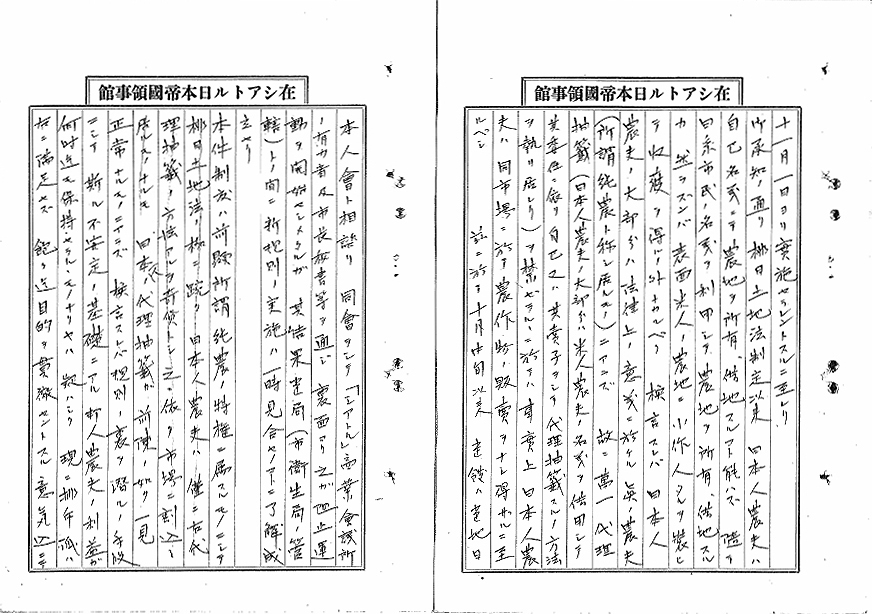 在シアトル日本帝國領事館
十一月一日ヨリ實施セラレントスルニ至レリ
御承知ノ通リ排日土地法制定以來日本人農夫ハ
自己名義ニテ農地ヲ所有、借地スルコト能ハズ
日系市民ノ名義ヲ利用シテ農地ヲ所有、借地スル
カ然ラズンバ表面米人ノ農地ニ小作人タルヲ裝ヒ
テ收穫ヲ得ル外ナカルベク換言スレバ日本人
農夫ノ大部分ハ法律上ノ意義ニ於ケル眞ノ農夫
(所謂純農ト称シ居ルモノ)ニアラズ故ニ萬一代理
抽籤(日本人農夫ノ大部分ハ米人農夫ノ名義ヲ借用シテ
其委任ニ依リ自己又ハ其賣子ヲシテ代理抽籤スルノ方法
ヲ執リ居レリ)ヲ禁セラルルニ於テハ事實上日本人農
夫ハ同市場ニ於テ農作物ノ販賣ヲナシ得サルニ至
ルベシ
茲ニ於テ十月中旬以來當館ハ當地日
在シアトル日本帝國領事館
本人會ト相談リ同會ヲシテ「シアトル」商業會議所
ノ有力者及市長秘書等ヲ通シ裏面ヨリ之カ阻止運
動ヲ開始セシメタルガ其結果當局(市衛生局ノ管
轄)トノ間ニ新規則ノ實施ハ一時見合セノコトニ了解成
立セリ
本件制度ハ前顯所謂純農ノ特權ニ屬スルモノニシテ
排日土地法ノ為ニ日本人農夫ハ僅ニ古代
理抽籤ノ方法アルヲ奇貨トシ之ニ依リ市場ニ割込ミ
居ルモノナルモ日本人ハ代理抽籤ガ前陳ノ如ク一見
正常ナルモノニアラズ換言スレバ規則ノ裏ヲ潛ルノ手段
ニシテ斯ル不安定ノ基礎ニアル邦人農夫ノ利益ガ
何時迄モ保持セラルルモノナリヤハ疑ハシク現ニ排斥派ハ
右ニ満足セズ飽ク迄目的ヲ貫徹セントスル意気込ニテ